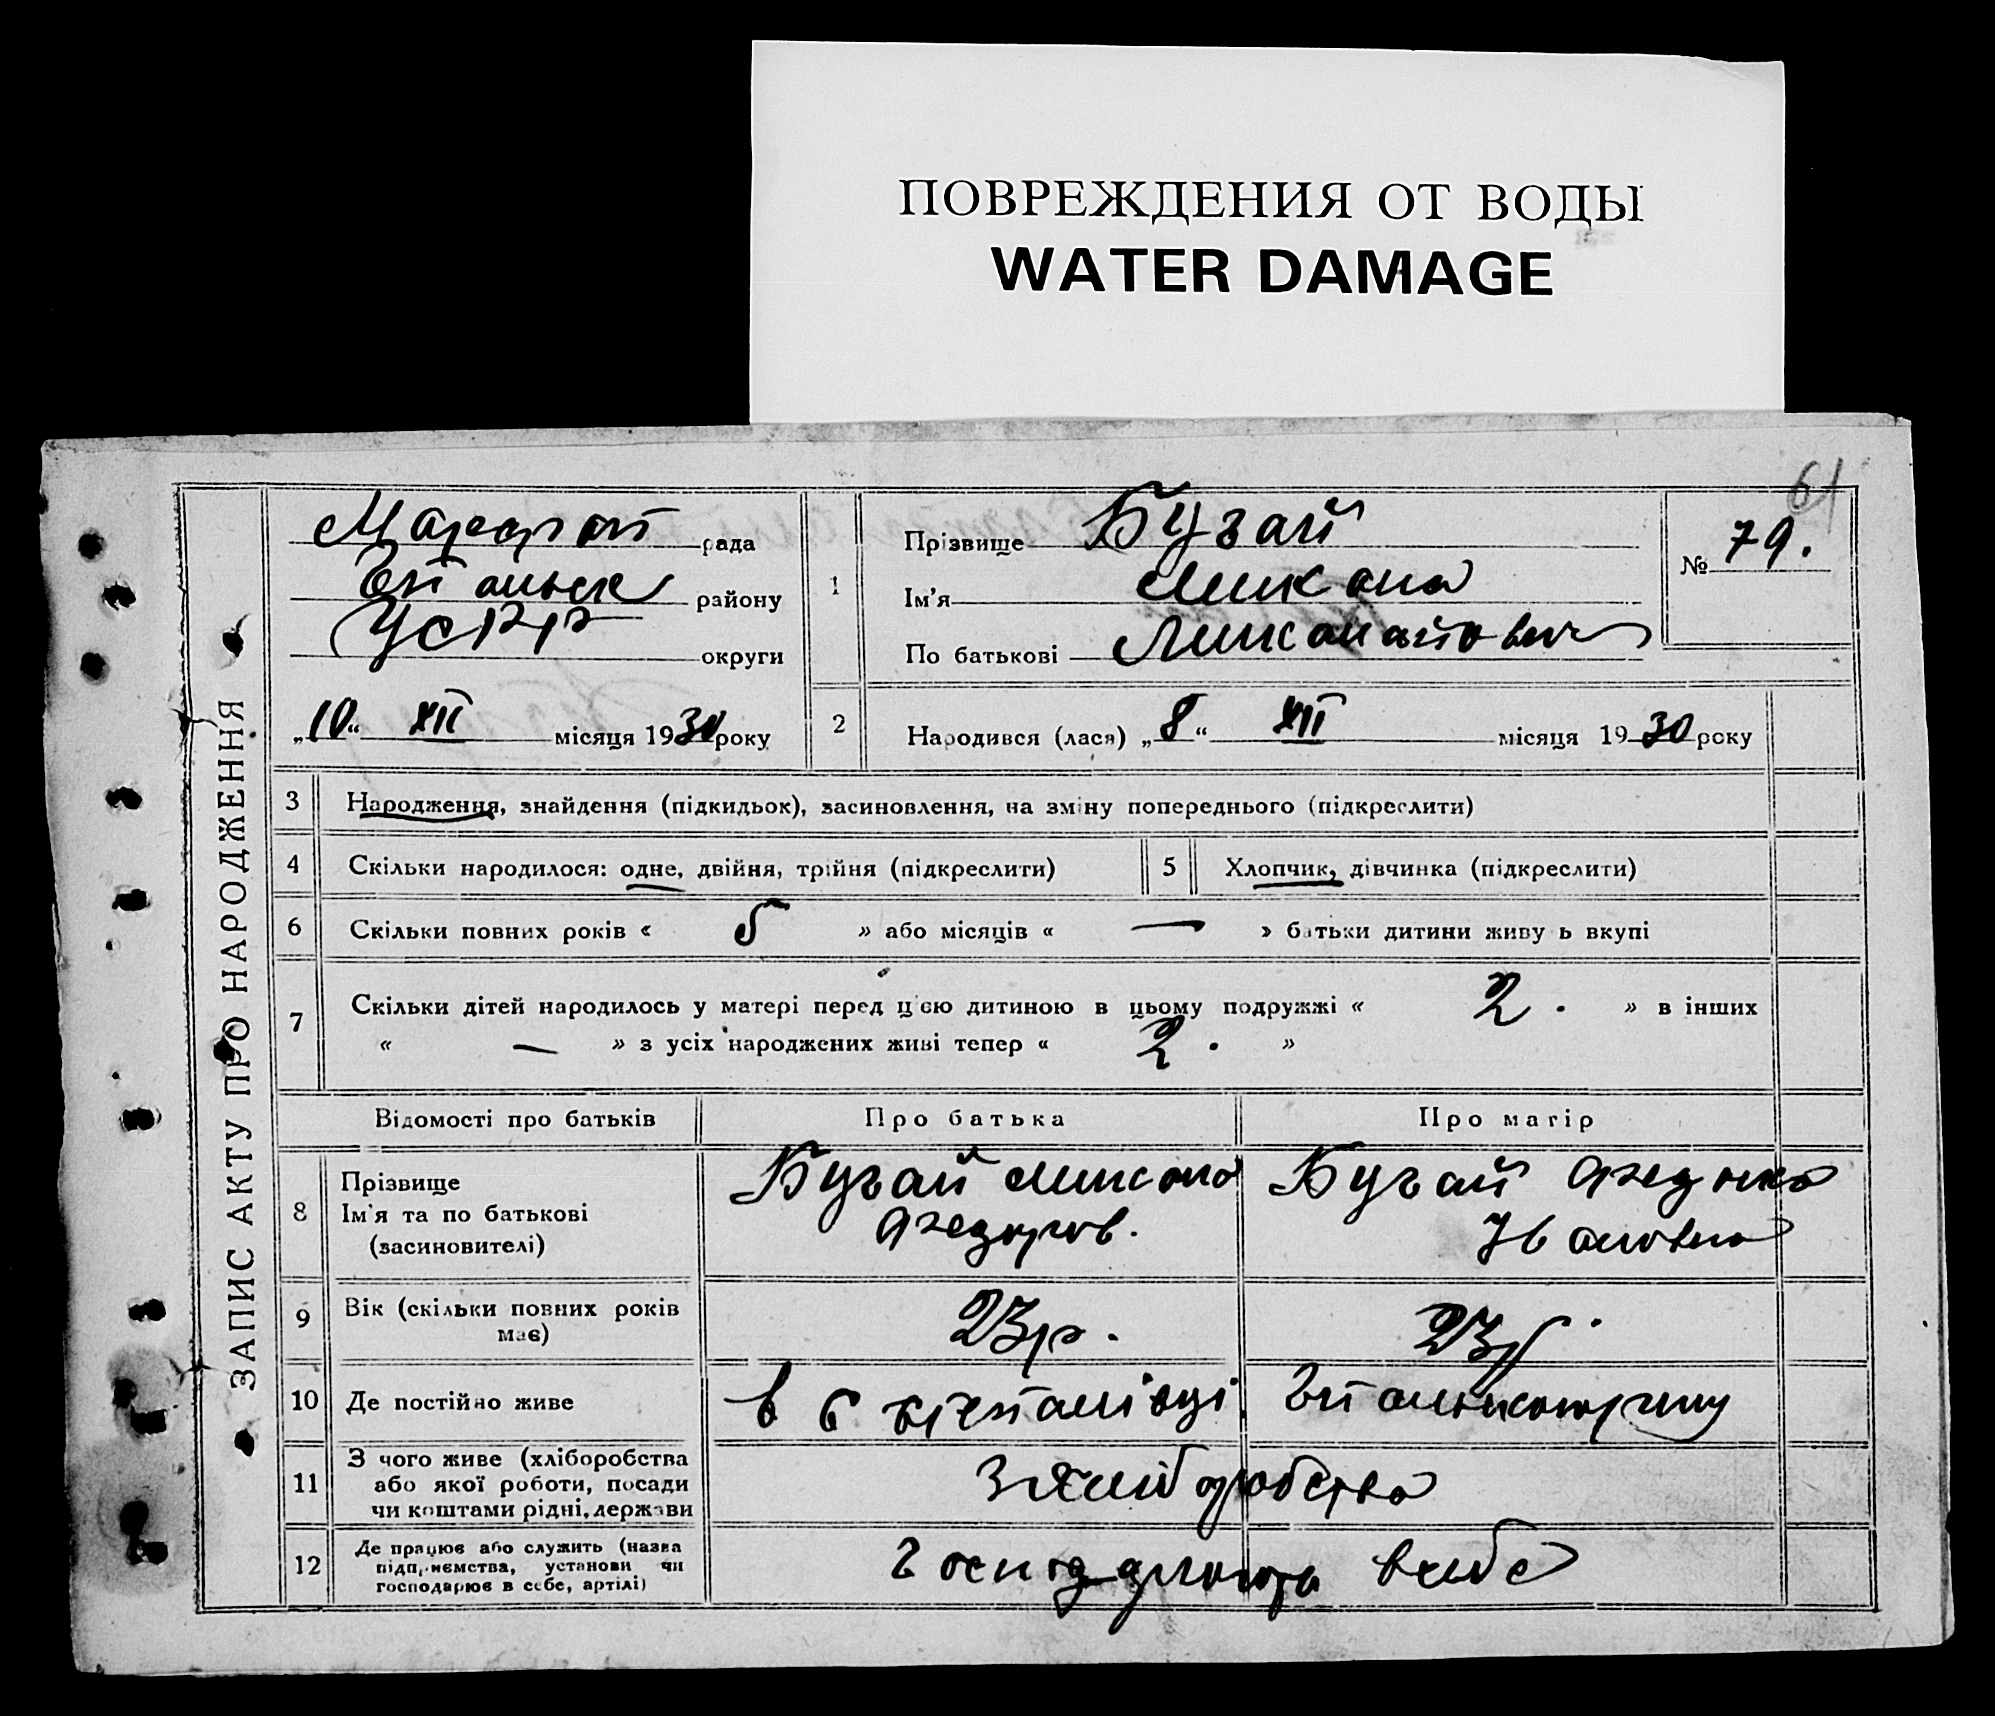 ПОВРЕЖДЕНИЯ ОТ ВОДЫ
WATER DAMAGE
61
ЗАПИС АКТУ ПРО НАРОДЖЕННЯ
рада
району
УСРР
округи
„10“ XII місяця 1930 року
1
Прізвище Бугай
Ім'я Микола
По батькові Миколайович
№ 79.
2
Народився (лася) „8“ XII місяця 1930 року
3 Народження, знайдення (підкидьок), засиновлення, на зміну попереднього (підкреслити)
4 Скільки народилося: одне, двійня, трійня (підкреслити)
5 Хлопчик, дівчинка (підкреслити)
6 Скільки повних років « 5 » або місяців « — » батьки дитини живуть вкупі
7 Скільки дітей народилось у матері перед цією дитиною в цьому подружжі « 2. » в інших
« — » з усіх народжених живі тепер « 2. »
Відомості про батьків Про батька Про матір
8 Прізвище
Ім'я та по батькові
(засиновителі)
Бугай Микола
Федоров.
Бугай
Івановна
9 Вік (скільки повних років
має)
23р.
23р.
10 Де постійно живе
в с
11 З чого живе (хліборобства
або якої роботи, посади
чи коштами рідні, держави
З хліборобства
12 Де працює або служить (назва
підприємства, установи чи
господарює в себе, артілі)
в себе